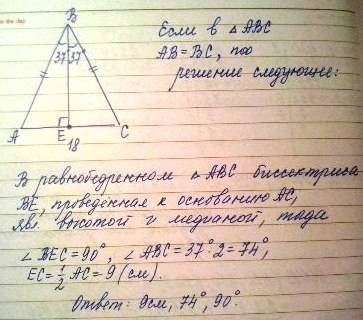 Если в △ABC
AB=BC, то
решение следующее:
B
37° 37°
A
E
C
18
В равнобедренном △ABC биссектриса
BE, проведённая к основанию AC,
явл. высотой и медианой, тогда
∠BEC=90°, ∠ABC=37°:2=74°,
EC=½AC=9(см).
Ответ: 9см, 74°, 90°.